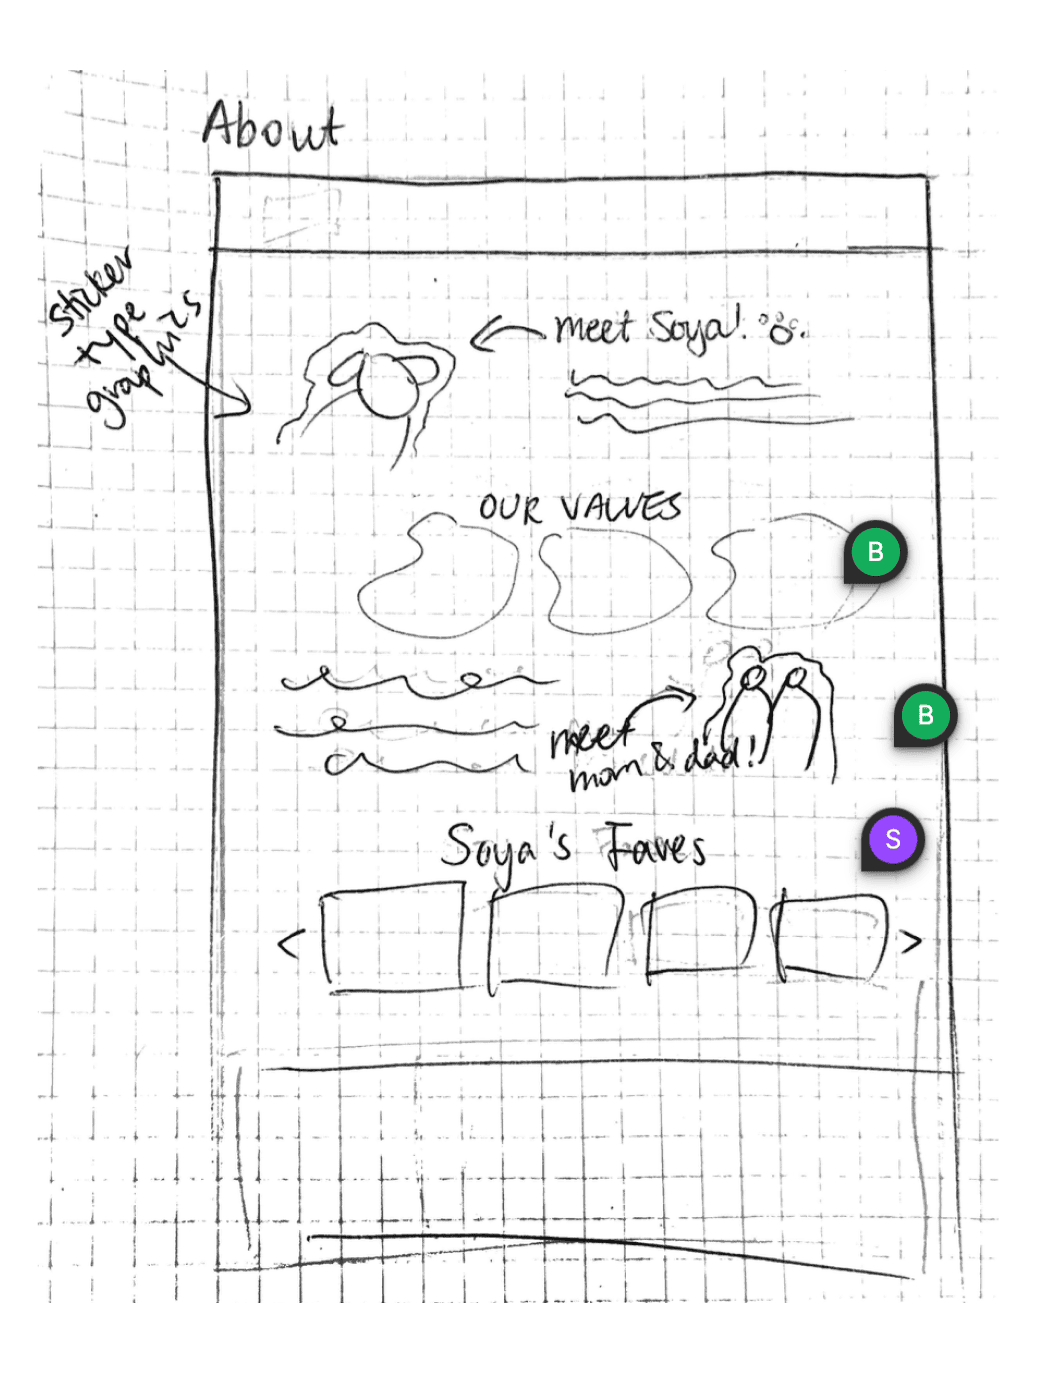 About
sticker
type
graphics
meet Soya!
OUR VALUES
B
meet
mom & dad!
B
Soya's Faves
S
< >